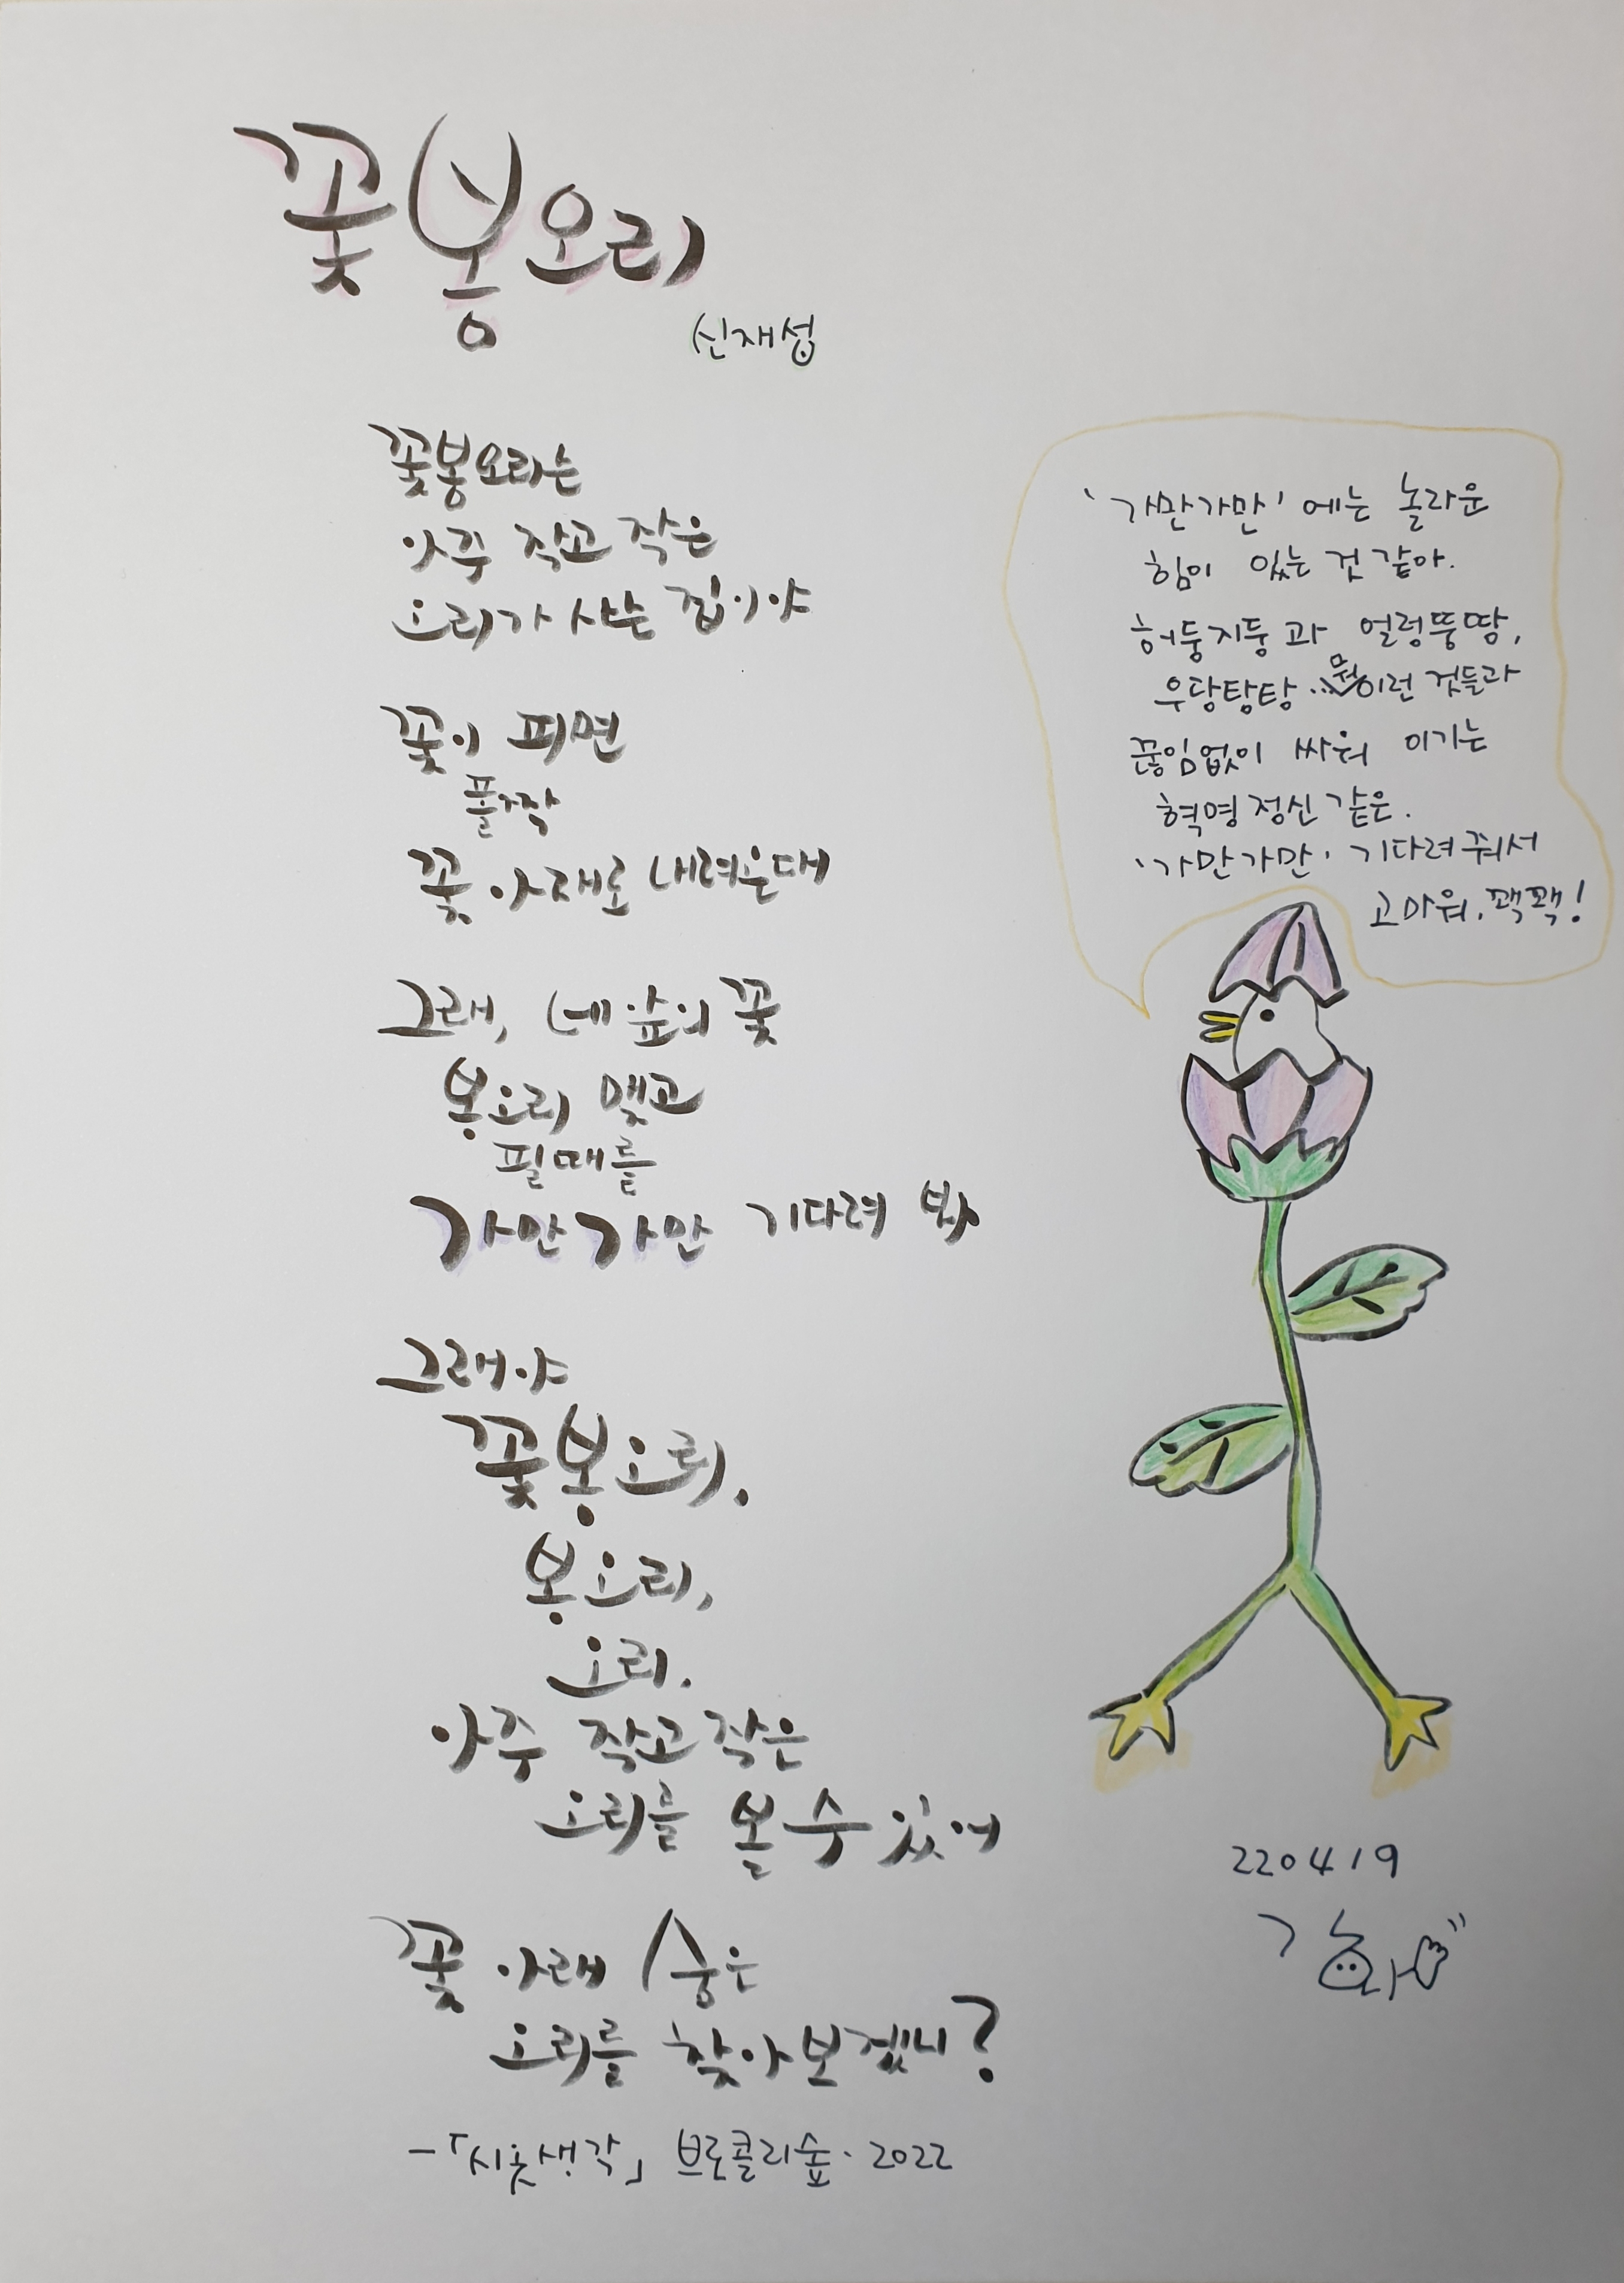 꽃봉오리
신재섭
꽃봉오리는
아주 작고 작은
오리가 사는 집이야
꽃이 피면
폴짝
꽃 아래로 내려온대
그래, 네 앞의 꽃
봉오리 맺고
필 때를
가만가만 기다려 봐
그래야
꽃봉오리,
봉오리,
오리,
아주 작고 작은
오리를 볼 수 있어
꽃 아래 숨은
오리를 찾아보겠니?
-「시옷생각」 브로콜리숲. 2022
'가만가만'에는 놀라운
힘이 있는 것 같아.
허둥지둥과 얼렁뚱땅,
우당탕탕... 뭐 이런 것들과
끊임없이 싸워 이기는
혁명 정신 같은.
'가만가만' 기다려 줘서
고마워, 꽥꽥!
220419